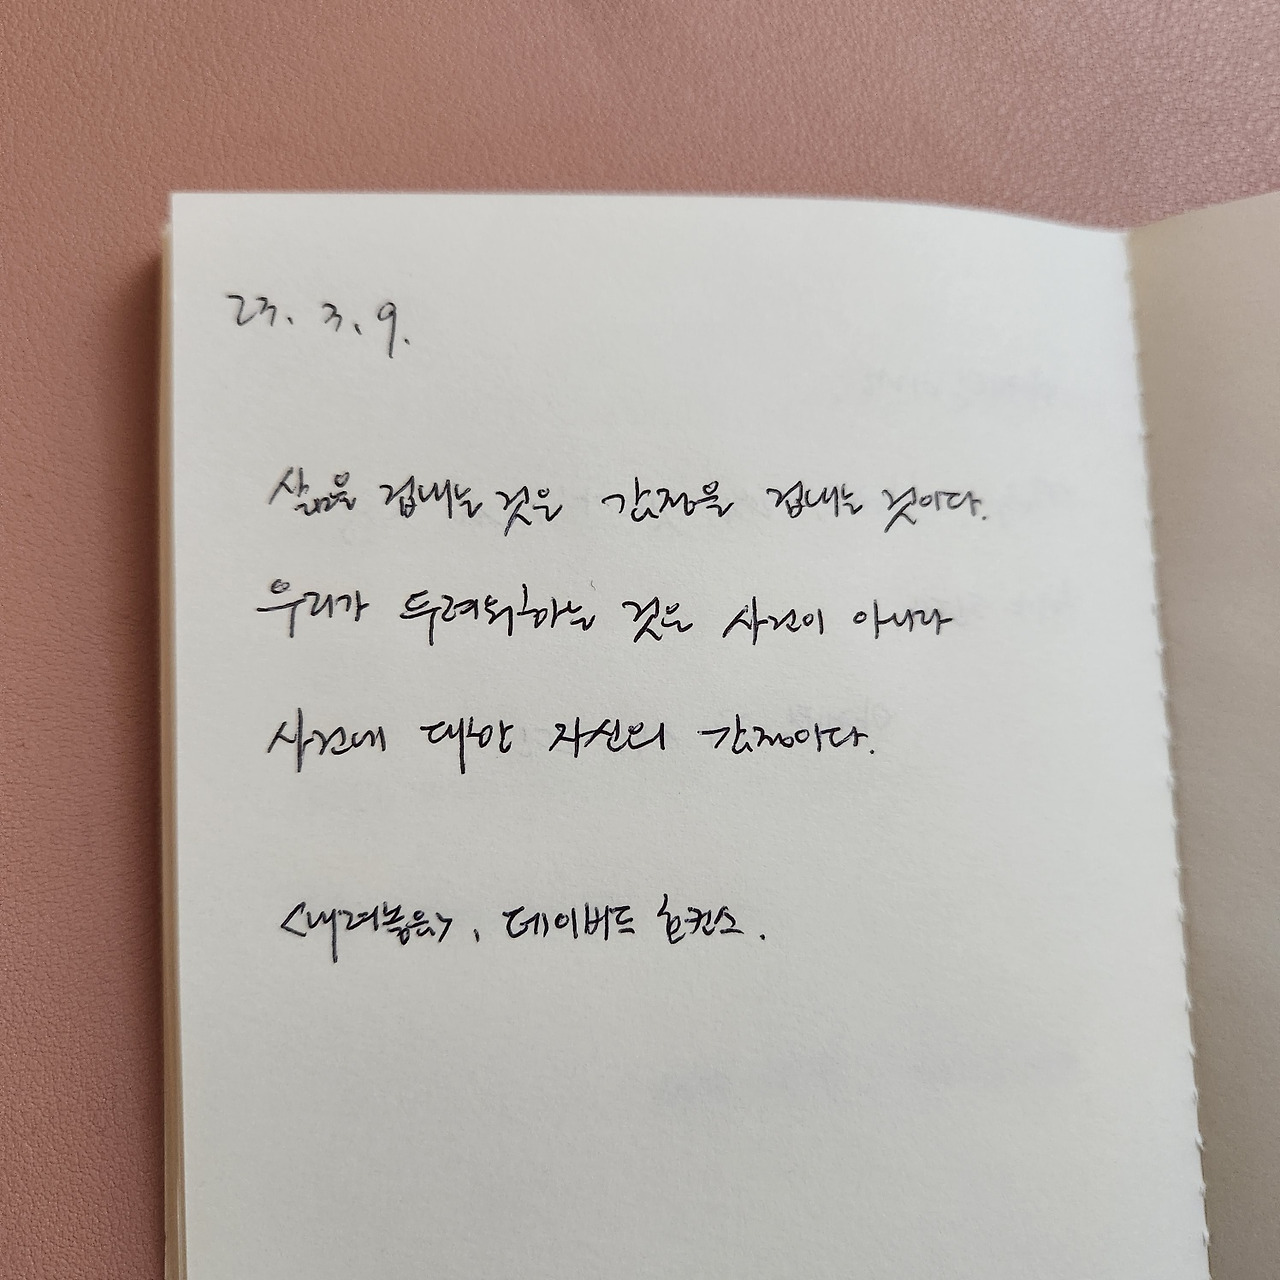 23. 3. 9.
삶을 겁내는 것은 감정을 겁내는 것이다.
우리가 두려워하는 것은 사건이 아니라
사건에 대한 자신의 감정이다.
<내려놓음>, 데이비드 호킨스.